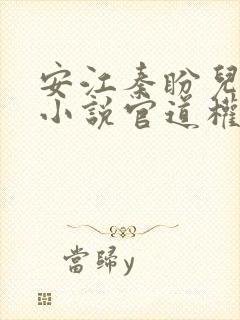 安江秦盼兒
小說官道權
當歸y